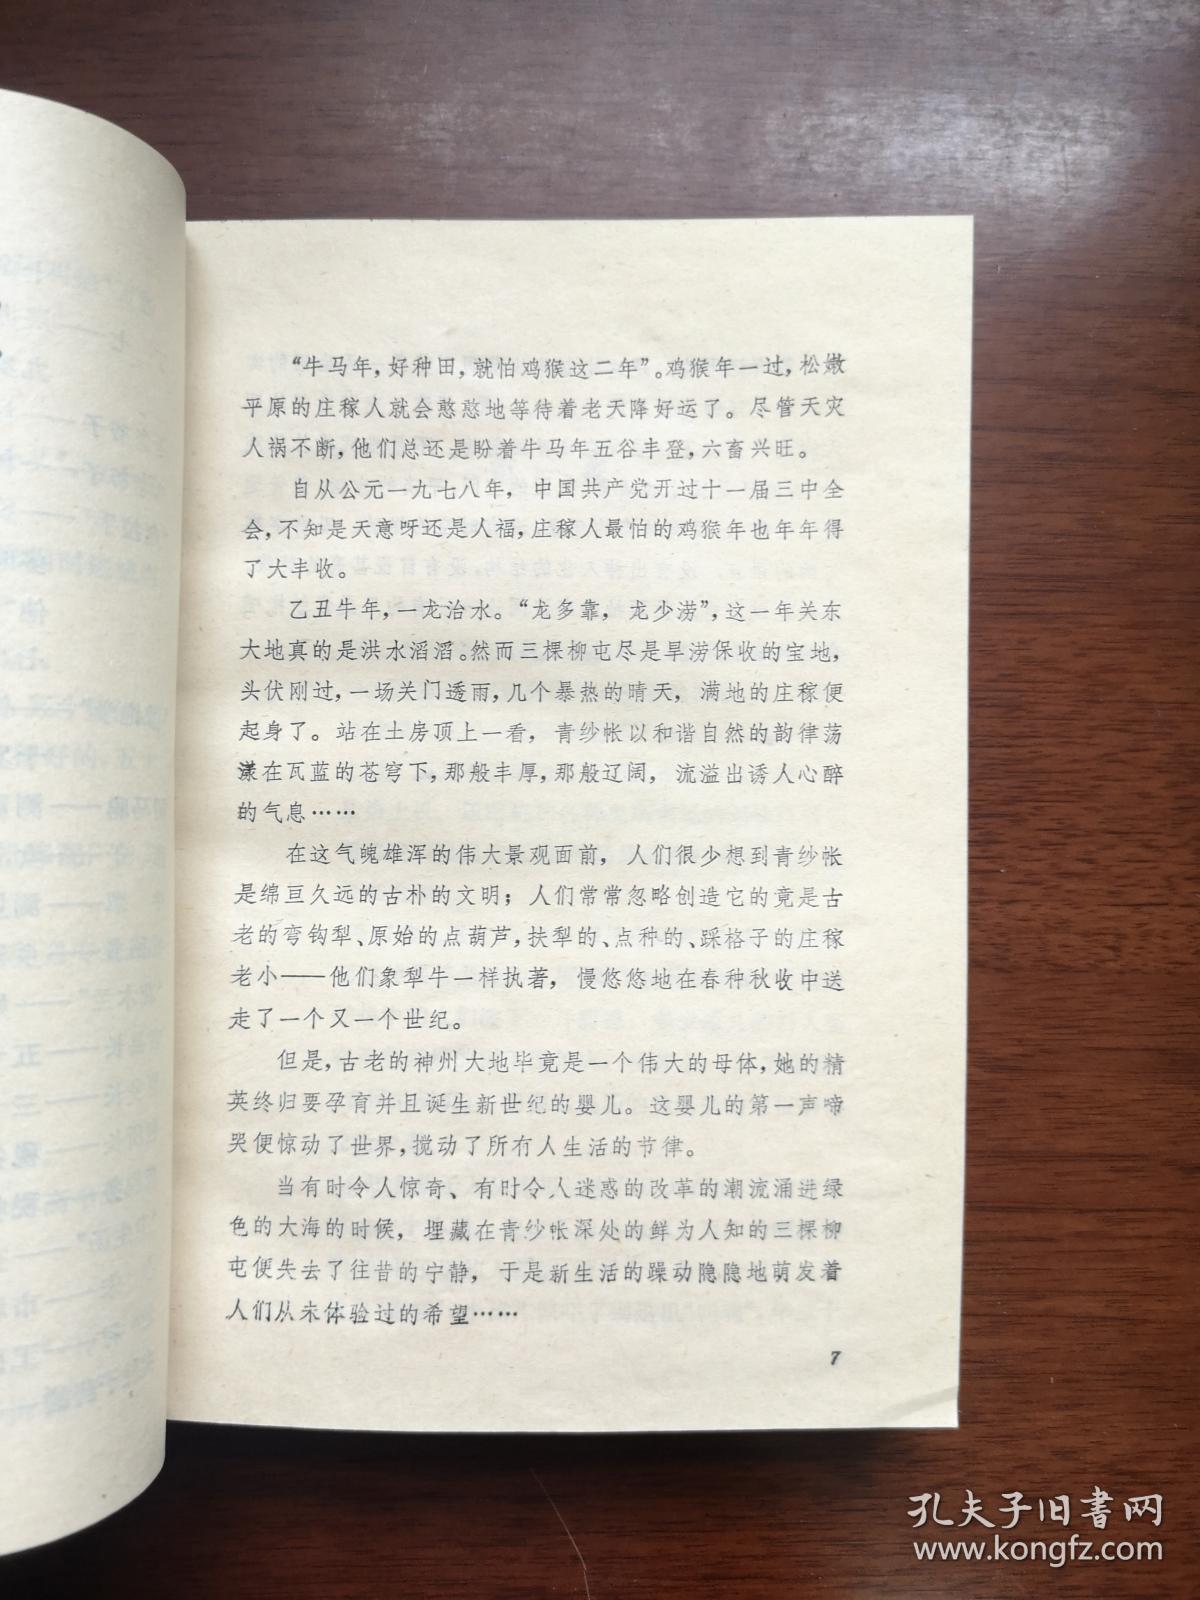 “牛马年，好种田，就怕鸡猴这二年”。鸡猴年一过，松嫩
平原的庄稼人就会憨憨地等待着老天降好运了。尽管天灾
人祸不断，他们总还是盼着牛马年五谷丰登，六畜兴旺。
自从公元一九七八年，中国共产党开过十一届三中全
会，不知是天意呀还是人福，庄稼人最怕的鸡猴年也年年得
了大丰收。
乙丑牛年，一龙治水。“龙多靠，龙少涝”，这一年关东
大地真的是洪水滔滔。然而三棵柳屯尽是旱涝保收的宝地，
头伏刚过，一场关门透雨，几个暴热的晴天，满地的庄稼便
起身了。站在土房顶上一看，青纱帐以和谐自然的韵律荡
漾在瓦蓝的苍穹下，那般丰厚，那般辽阔，流溢出诱人心醉
的气息……
在这气魄雄浑的伟大景观面前，人们很少想到青纱帐
是绵亘久远的古朴的文明；人们常常忽略创造它的竟是古
老的弯钩犁、原始的点葫芦，扶犁的、点种的、踩格子的庄稼
老小——他们象犁牛一样执著，慢悠悠地在春种秋收中送
走了一个又一个世纪。
但是，古老的神州大地毕竟是一个伟大的母体，她的精
英终归要孕育并且诞生新世纪的婴儿。这婴儿的第一声啼
哭便惊动了世界，搅动了所有人生活的节律。
当有时令人惊奇、有时令人迷惑的改革的潮流涌进绿
色的大海的时候，埋藏在青纱帐深处的鲜为人知的三棵柳
屯便失去了往昔的宁静，于是新生活的躁动隐隐地萌发着
人们从未体验过的希望……
7
孔夫子旧书网
www.kongfz.com